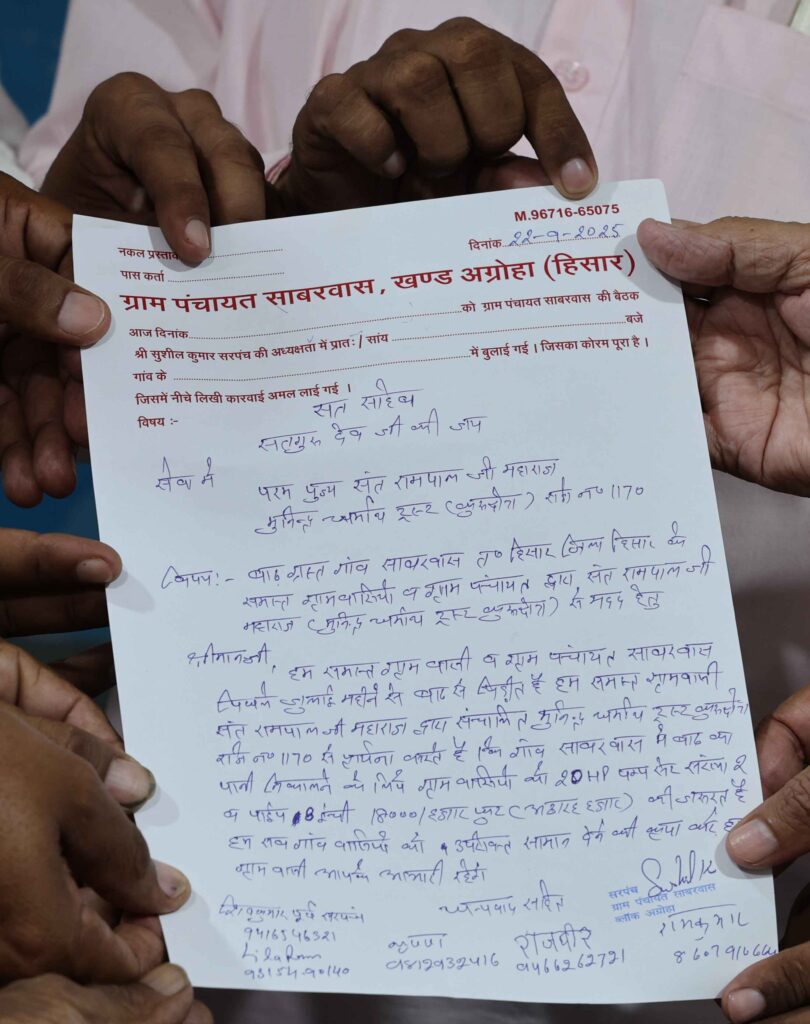 M.96716-65075
नकल प्रस्ताव
दिनांक 22-9-2025
पास कर्ता
ग्राम पंचायत साबरवास, खण्ड अग्रोहा (हिसार)
आज दिनांक को ग्राम पंचायत साबरवास की बैठक
श्री सुशील कुमार सरपंच की अध्यक्षता में प्रातः / सांय बजे
गांव के में बुलाई गई । जिसका कोरम पूरा है ।
जिसमें नीचे लिखी कारवाई अमल लाई गई ।
विषय :-
सत साहेब
सतगुरु देव जी की जय
सेवा में
परम पूज्य संत रामपाल जी महाराज
मुनिन्द्र धर्मार्थ ट्रस्ट (कुरुक्षेत्र) रजि न० 1170
विषय:- बाढ ग्रस्त गांव साबरवास त० हिसार जिला हिसार के
समस्त ग्रामवासियों व ग्राम पंचायत द्वारा संत रामपाल जी
महाराज (मुनिन्द्र धर्मार्थ ट्रस्ट कुरुक्षेत्र) से मदद हेतु
श्रीमानजी,
हम समस्त ग्राम वासी व ग्राम पंचायत साबरवास
पिछले जुलाई महीने से बाढ से पिड़ीत है हम समस्त ग्रामवासी
संत रामपाल जी महाराज द्वारा संचालित मुनिन्द्र धर्मार्थ ट्रस्ट कुरुक्षेत्र
रजि न० 1170 से प्रार्थना करते है कि गांव साबरवास में बाढ का
पानी निकालने के लिये ग्राम वासियों को 20HP पम्प सेट संख्या 2
व पाईप 8 इन्ची 18000/ हजार फुट (अठारह हजार) की जरूरत है
हम सब गांव वासियों को उपरोक्त सामान देने की कृपा करें हम
ग्राम वासी आपके आभारी रहेंगे
धन्यवाद सहित
सरपंच
ग्राम पंचायत साबरवास
ब्लॉक अग्रोहा
कुमार पूर्व सरपंच
9416546321
Lila Ram
93154-90140
कृष्ण
9812932416
राजबीर
9466262721
रामकुमार